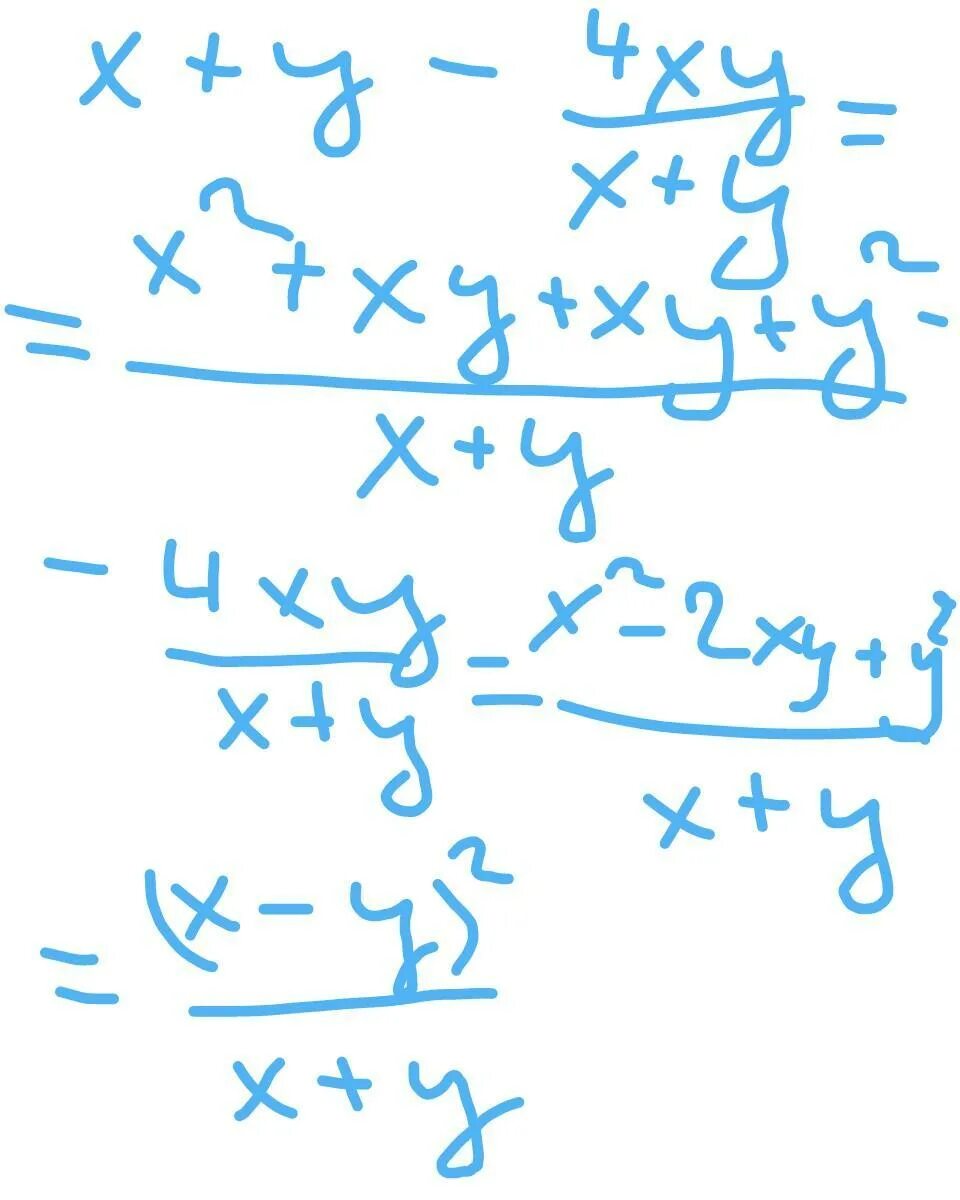 x + y - 4xy/(x + y) =
= (x² + xy + xy + y²)/(x + y) -
- 4xy/(x + y) = (x² - 2xy + y²)/(x + y)
= (x - y)²/(x + y)